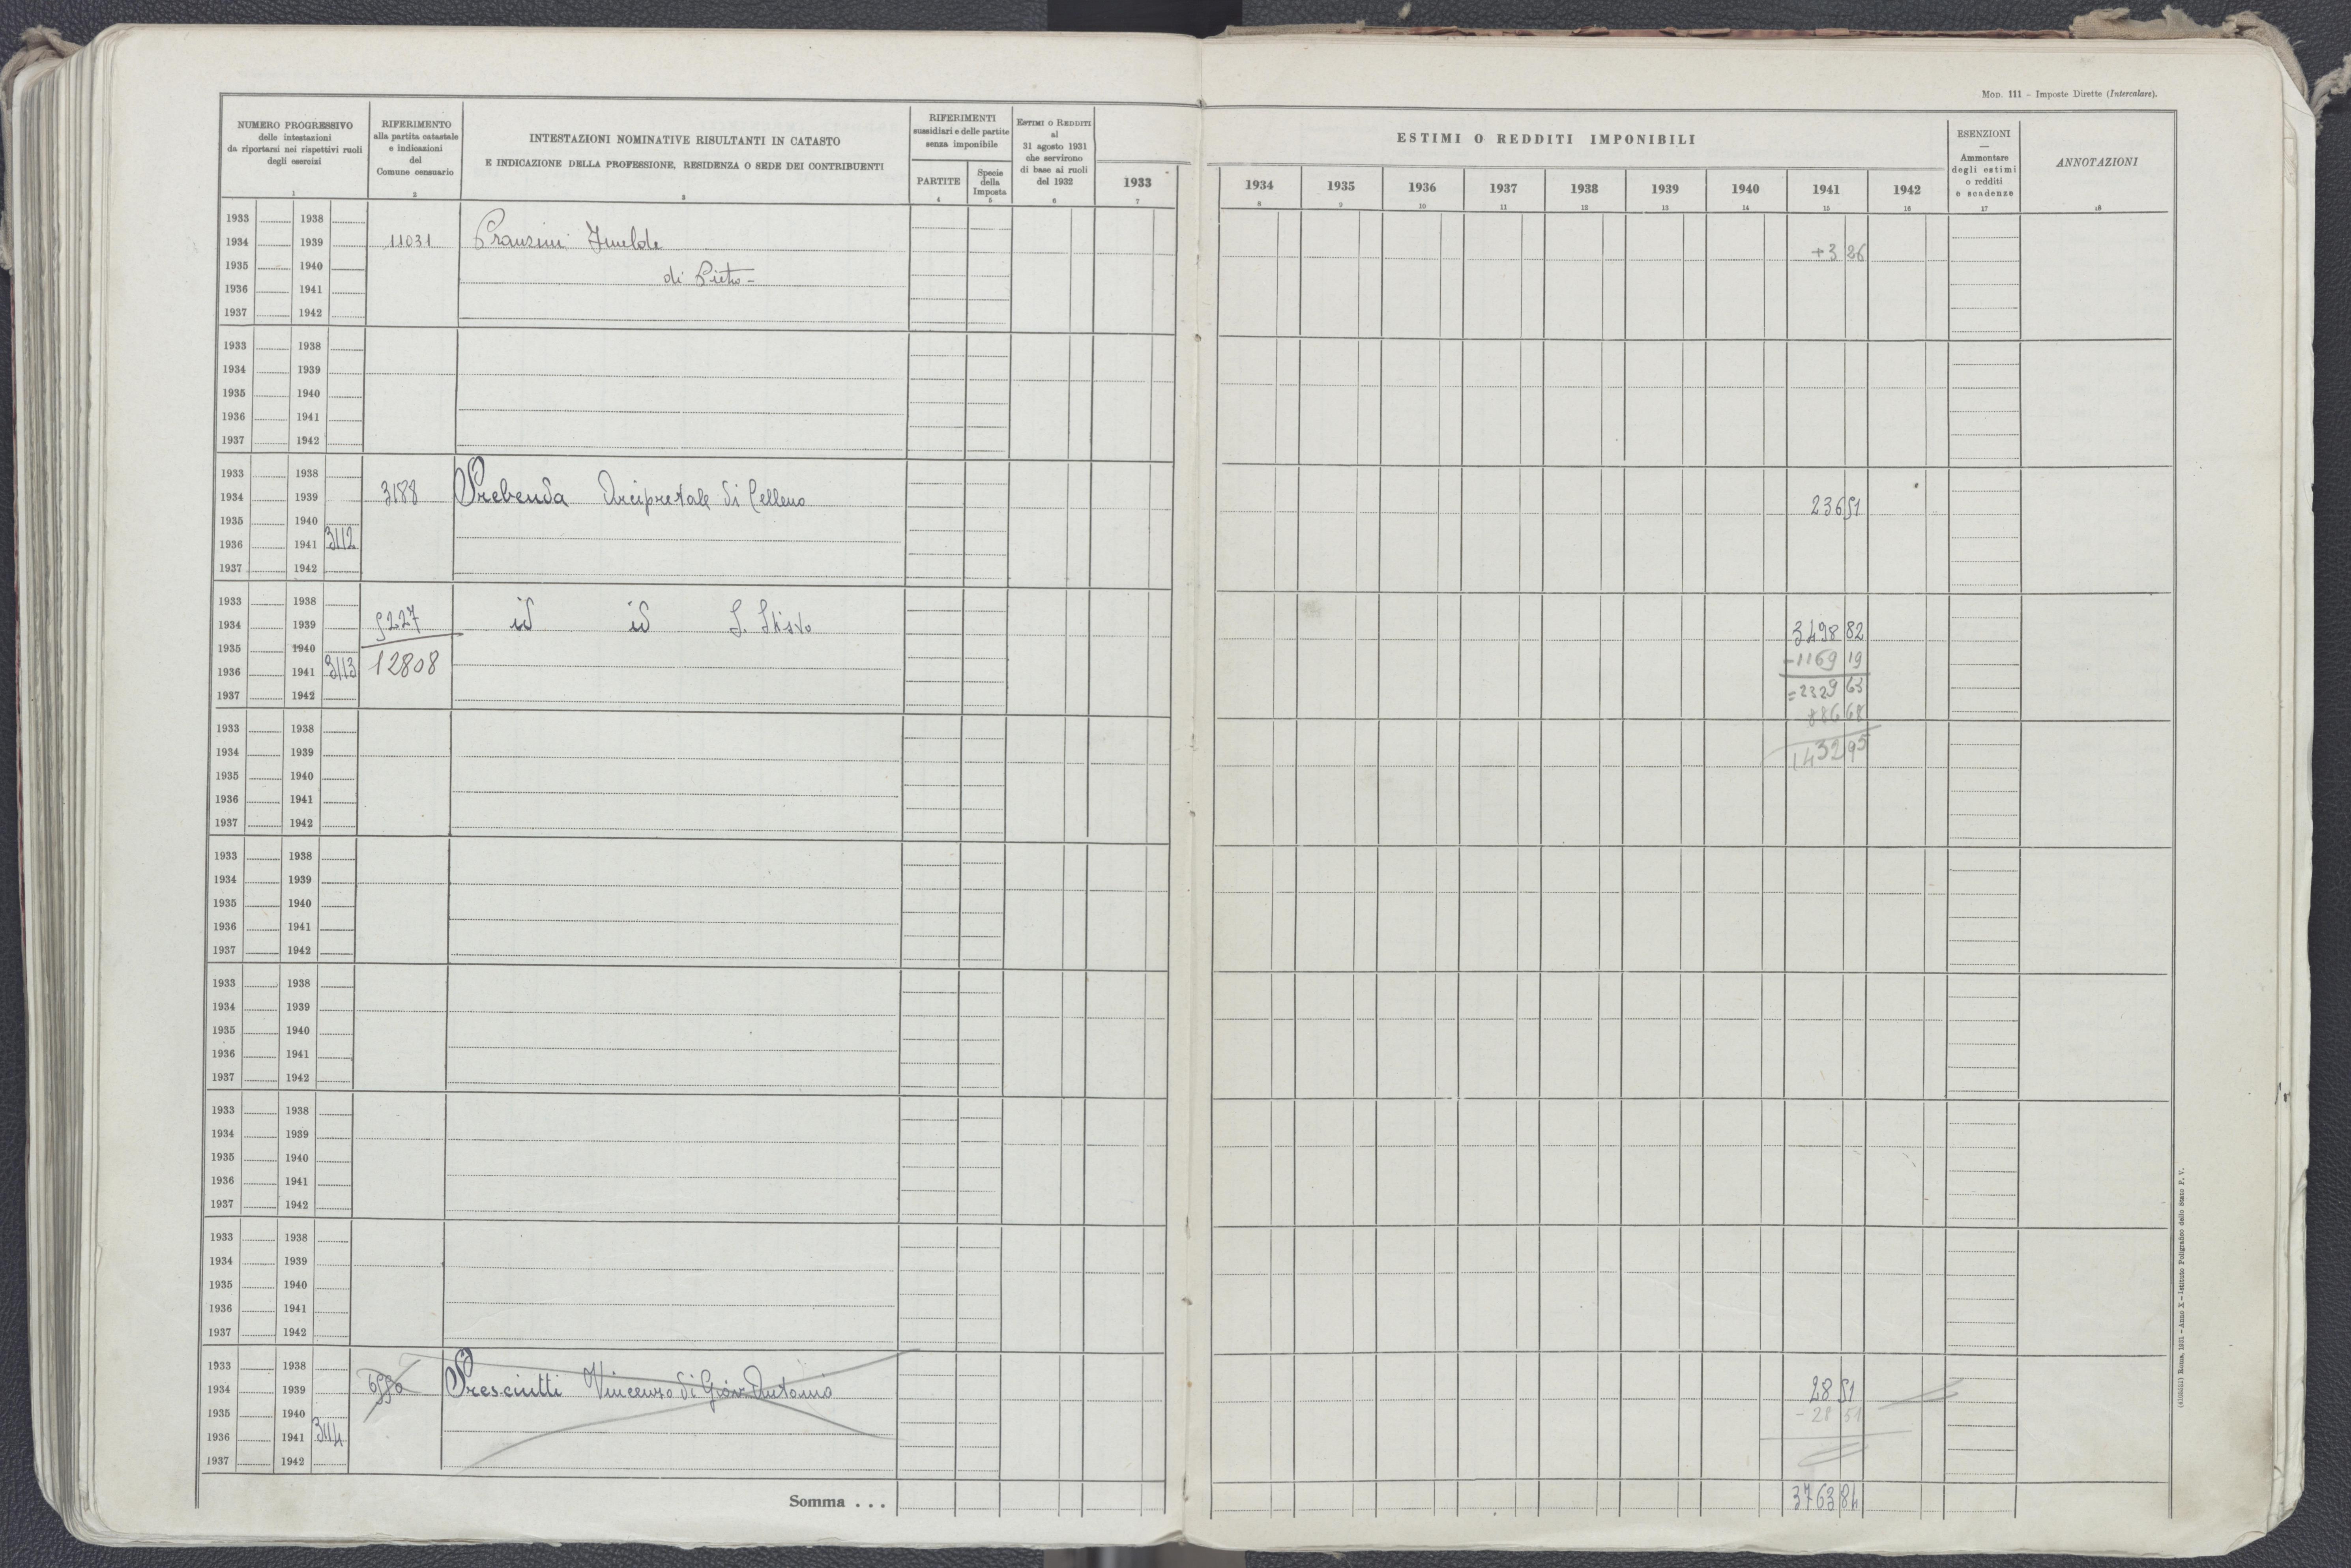 MOD. 111 – Imposte Dirette (Intercalare).
NUMERO PROGRESSIVO
delle intestazioni
da riportarsi nei rispettivi ruoli
degli esercizi
1
RIFERIMENTO
alla partita catastale
e indicazioni
del
Comune censuario
2
INTESTAZIONI NOMINATIVE RISULTANTI IN CATASTO
E INDICAZIONE DELLA PROFESSIONE, RESIDENZA O SEDE DEI CONTRIBUENTI
3
RIFERIMENTI
sussidiari e delle partite
senza imponibile
PARTITE
4
Specie
della
Imposta
5
ESTIMI O REDDITI
al
31 agosto 1931
che servirono
di base ai ruoli
del 1932
6
1933
7
ESTIMI O REDDITI IMPONIBILI
1934 1935 1936 1937 1938 1939 1940 1941 1942
8 9 10 11 12 13 14 15 16
ESENZIONI
—
Ammontare
degli estimi
o redditi
e scadenze
17
ANNOTAZIONI
18
1933 1938
1934 1939 11031 Pranzini Imelde +3 26
1935 1940 di Pietro –
1936 1941
1937 1942
1933 1938
1934 1939
1935 1940
1936 1941
1937 1942
1933 1938
1934 1939 3188 Prebenda Arcipretale di Celleno 236 51
1935 1940
1936 1941 3112
1937 1942
1933 1938
1934 1939 5227 id id S. Sisto 3498 82
1935 1940 -1169 19
1936 1941 3113 12808
1937 1942 =2329 63
886 68
1933 1938
1934 1939 1432 95
1935 1940
1936 1941
1937 1942
1933 1938
1934 1939
1935 1940
1936 1941
1937 1942
1933 1938
1934 1939
1935 1940
1936 1941
1937 1942
1933 1938
1934 1939
1935 1940
1936 1941
1937 1942
1933 1938
1934 1939
1935 1940
1936 1941
1937 1942
1933 1938
1934 1939 Presciutti Vincenzo di Giov. Antonio 28 51
1935 1940 - 28 51
1936 1941 3114
1937 1942
Somma . . . 3763 84